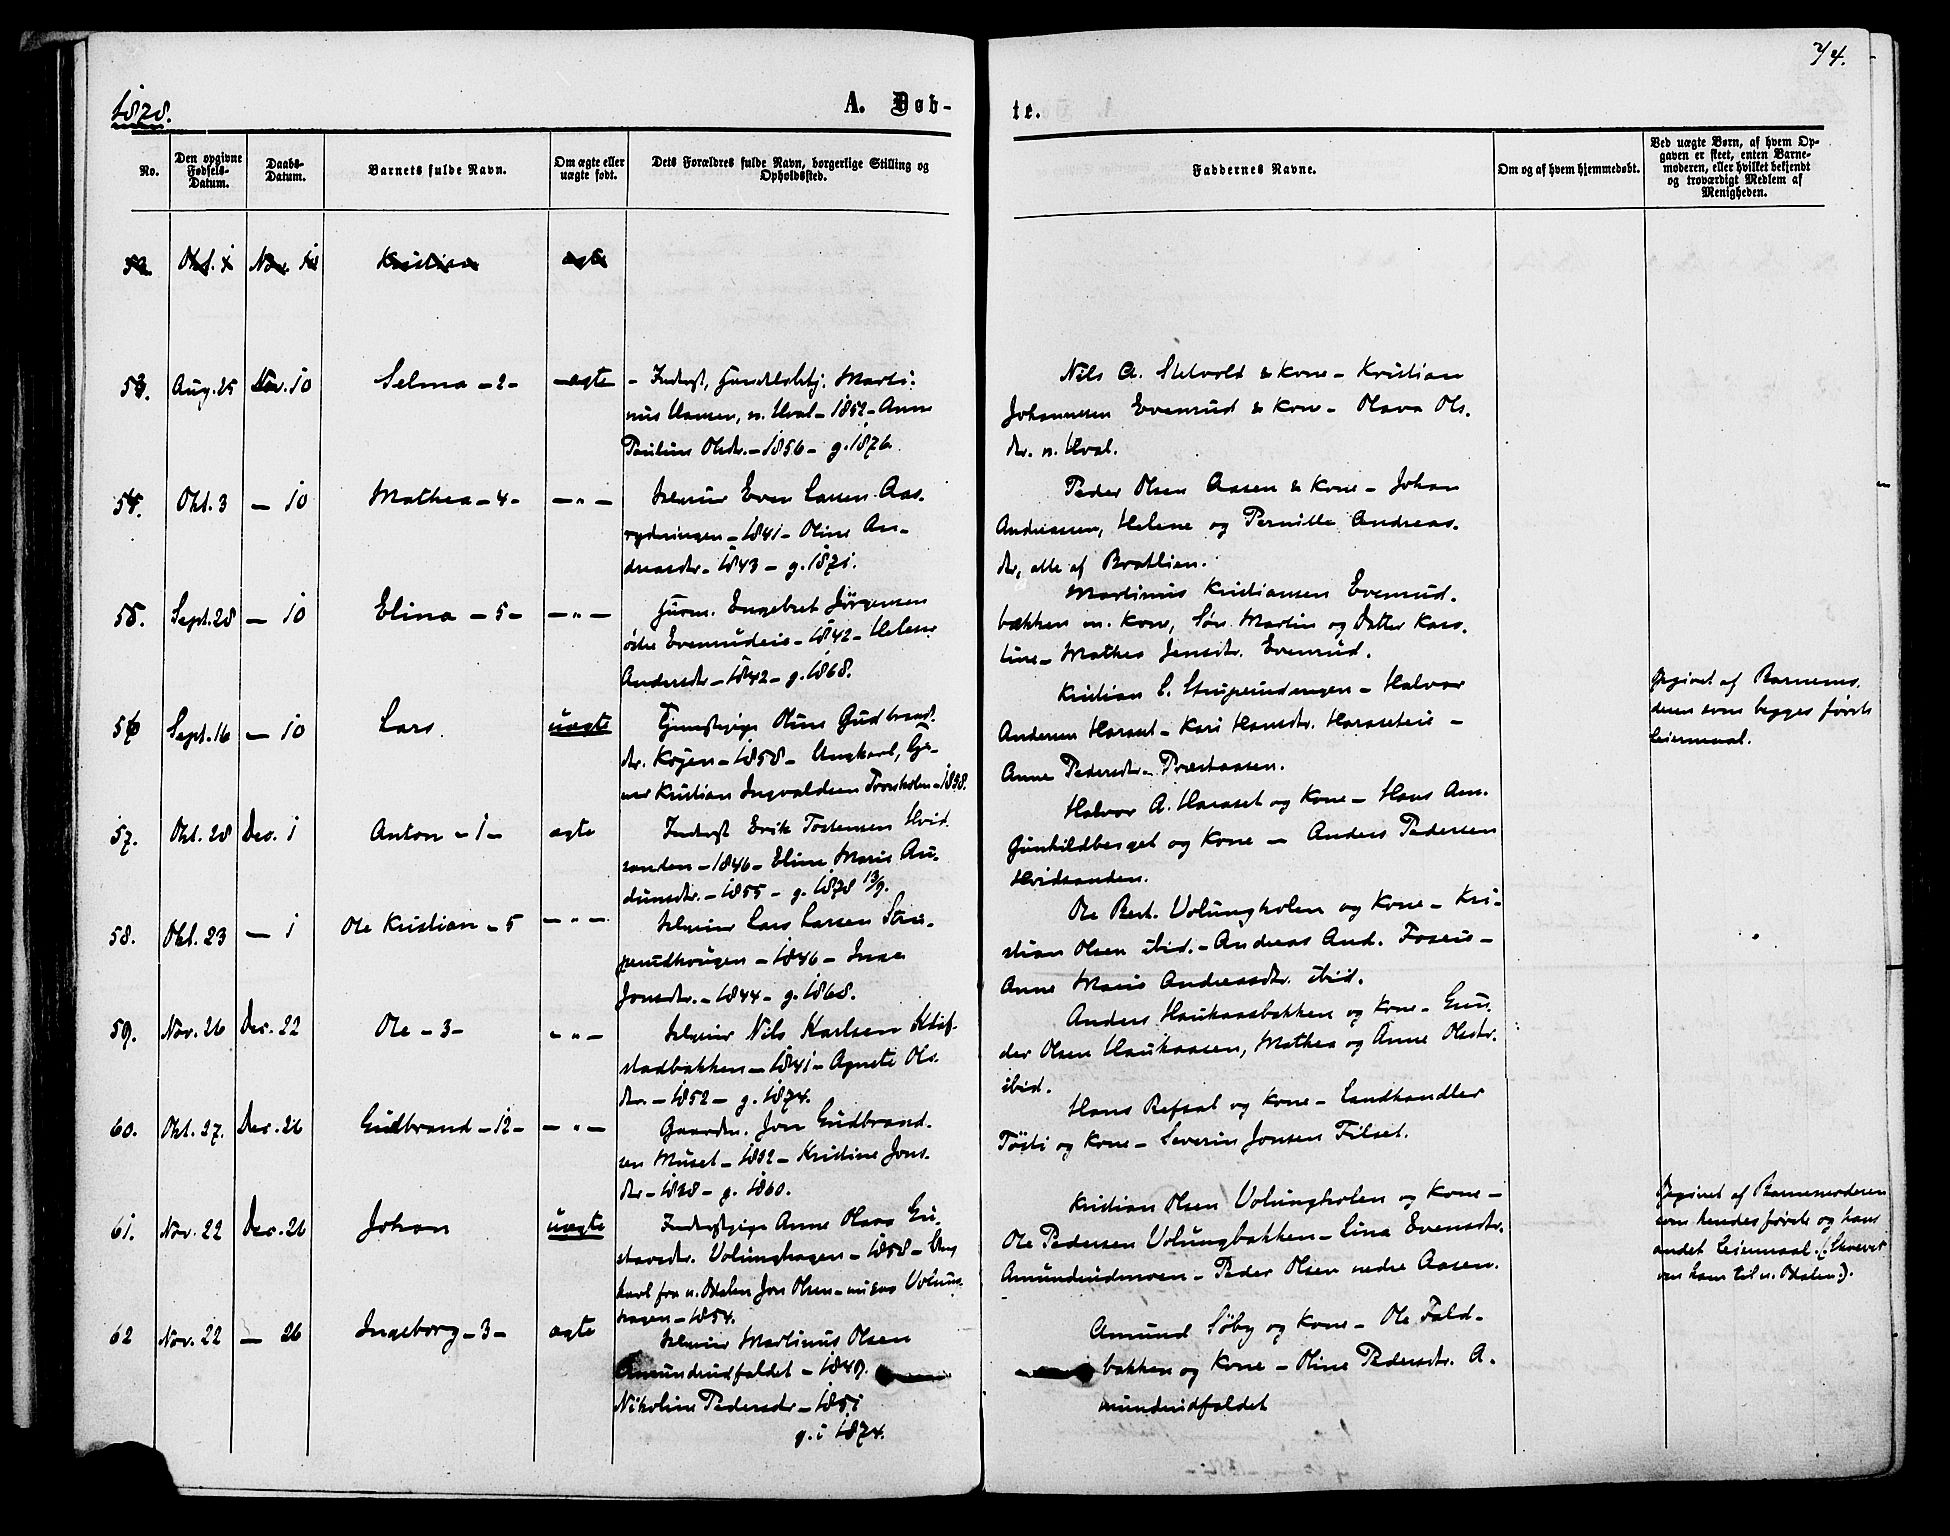 2/4.
1878.
A. Døb-
te.
No.
Den opgivne Fødsels-Datum.
Daabs-Datum.
Barnets fulde Navn.
Om ægte eller uægte født.
Dets Forældres fulde Navn, borgerlige Stilling og Opholdssted.
Faddernes Navne.
Om og af hvem hjemmedøbt.
Ved uægte Børn, af hvem Opgaven er skeet, enten Barnemoderen, eller hvilket bekjendt og troværdigt Medlem af Menigheden.
Nov.
Kristian
ægte
53. Aug. 25 Nov. 10 Selma - 2 - - ægte
- Inderst, Marti-
nus Hansen, n. Hval - 1852 - Anne
Pauline Olsdtr. - 1856 - g. 1876.
Nils A. Stelvold & Kone - Kristian
Johannesen Evenrud & Kone - Olava Ols.
dtr. n. Hval.
54. Okt. 3 - 10 Mathea - 4 - - " -
Selveier Even Larsen Aas-
rydningen - 1841 - Oline An-
dreasdtr. - 1843 - g. 1871.
Peder Olsen Aasen & Kone - Johan
Andreassen, Helene og Pernille Andreas-
dtr, alle af Bratlien.
55. Sept. 28 - 10 Elina - 5 - - " -
Huusm. Engebret Jørgensen
østre Evenrudeie - 1842 - Helene
Andersdtr - 1842 - g. 1868.
Martinus Kristiansen Evenrud-
bakken m. Kone, Søn Martin og Datter Karo-
line - Mathea Jensdtr. Evenrud.
56 Sept. 16 - 10 Lars. uægte
Tjenestepige Oline Gudbrands-
dtr. Kojen - 1858 - Ungkarl, Ga-
ver Kristian Ingvaldsen Tronholen - 1838.
Kristian L. Struperudengen - Halvor
Andersen Haraset - Kari Hansdtr. Haraseteie -
Anne Pedersdtr - Præstaasen.
Opgivet af Barnemo-
deren som begges første
Leiermaal.
57. Okt. 28 Des. 1 Anton - 1 - ægte
Inderst Erik Tostensen Hvid-
sanden - 1846 - Eline Marie Au-
dunsdtr. - 1855 - g. 1878 13/9.
Halvor A. Haraset og Kone - Hans Am.
Gunhildberget og Kone - Anders Pedersen
Hvidsanden.
58. Okt. 23 - 1 Ole Kristian - 5 - " -
Selveier Lars Larsen Stru-
perudhougen - 1846 - Inga
Jonsdtr. - 1844 - g. 1868.
Ole Bert. Volungholen og Kone - Kri-
stian Olsen ibid. - Andreas And. Foseie -
Anne Marie Andreasdtr. ibid.
59. Nov. 26 Dec. 22 Ole - 3 - - " -
Selveier Nils Karlsen Kløf-
stadbakken - 1841 - Agnete Ols-
dtr. - 1852 - g. 1874.
Anders Haukaasbakken og Kone - Gun-
der Olsen Haukaasen, Mathea og Anne Olsdtr.
ibid.
60. Okt. 27. Dec. 26 Gudbrand - 12 - - " -
Gaardm. Jon Gudbrand-
sen Müset - 1832 - Kristine Jons-
dtr - 1838 - g. 1860.
Hans Refsal og Kone - Landhandler
Tøsti og Kone - Severin Jonsen Filset.
61. Nov. 22 Dec. 26 Johan uægte
Inderstpige Anne Olava Gu-
stavsdtr. Volunghagen - 1858 - Ung-
karl fra n. Odalen Jon Olsen - Volung-
hagen - 1854.
Kristian Olsen Volungholen og Kone -
Ole Pedersen Volungbakken - Lina Evensdtr.
Amundrudmoen - Peder Olsen nedre Aasen.
Opgivet af Barnemoderen
som hendes første og hans
andet Leiermaal. (: Skrevet
om ham til n. Odalen :).
62 Nov. 22 - 26 Ingeborg - 3 - ægte
Selveier Martinus Olsen
Amundrudfaldet - 1849.
Nikoline Pedersdr - 1851
g. i 1874.
Amund Søby og Kone - Ole Fald-
bakken og Kone - Oline Pedersdtr. A-
mundrudfaldet